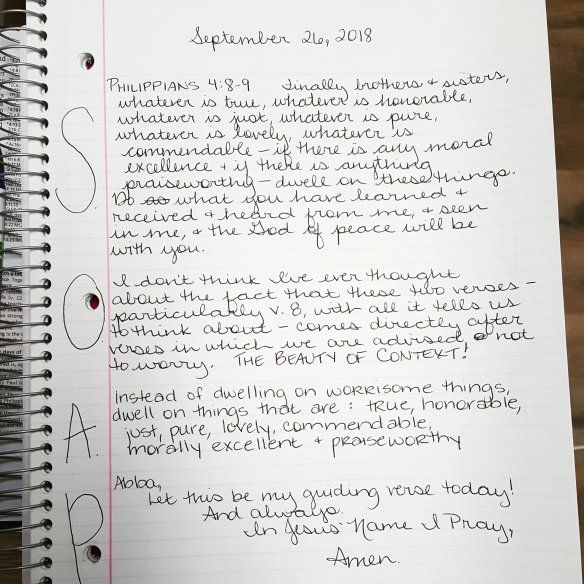 September 26, 2018
S.
PHILIPPIANS 4:8-9 Finally brothers + sisters,
whatever is true, whatever is honorable,
whatever is just, whatever is pure,
whatever is lovely, whatever is
commendable - if there is any moral
excellence + if there is anything
praiseworthy - dwell on these things.
Do as what you have learned +
received + heard from me, + seen
in me, + the God of peace will be
with you.
O.
I don't think I've ever thought
about the fact that these two verses -
particularly v. 8, with all it tells us
to think about - comes directly after
verses in which we are advised not
to worry. THE BEAUTY OF CONTEXT!
A.
Instead of dwelling on worrisome things,
dwell on things that are: true, honorable,
just, pure, lovely, commendable,
morally excellent + praiseworthy
P
Abba,
Let this be my guiding verse today!
And always.
In Jesus' Name I Pray,
Amen.